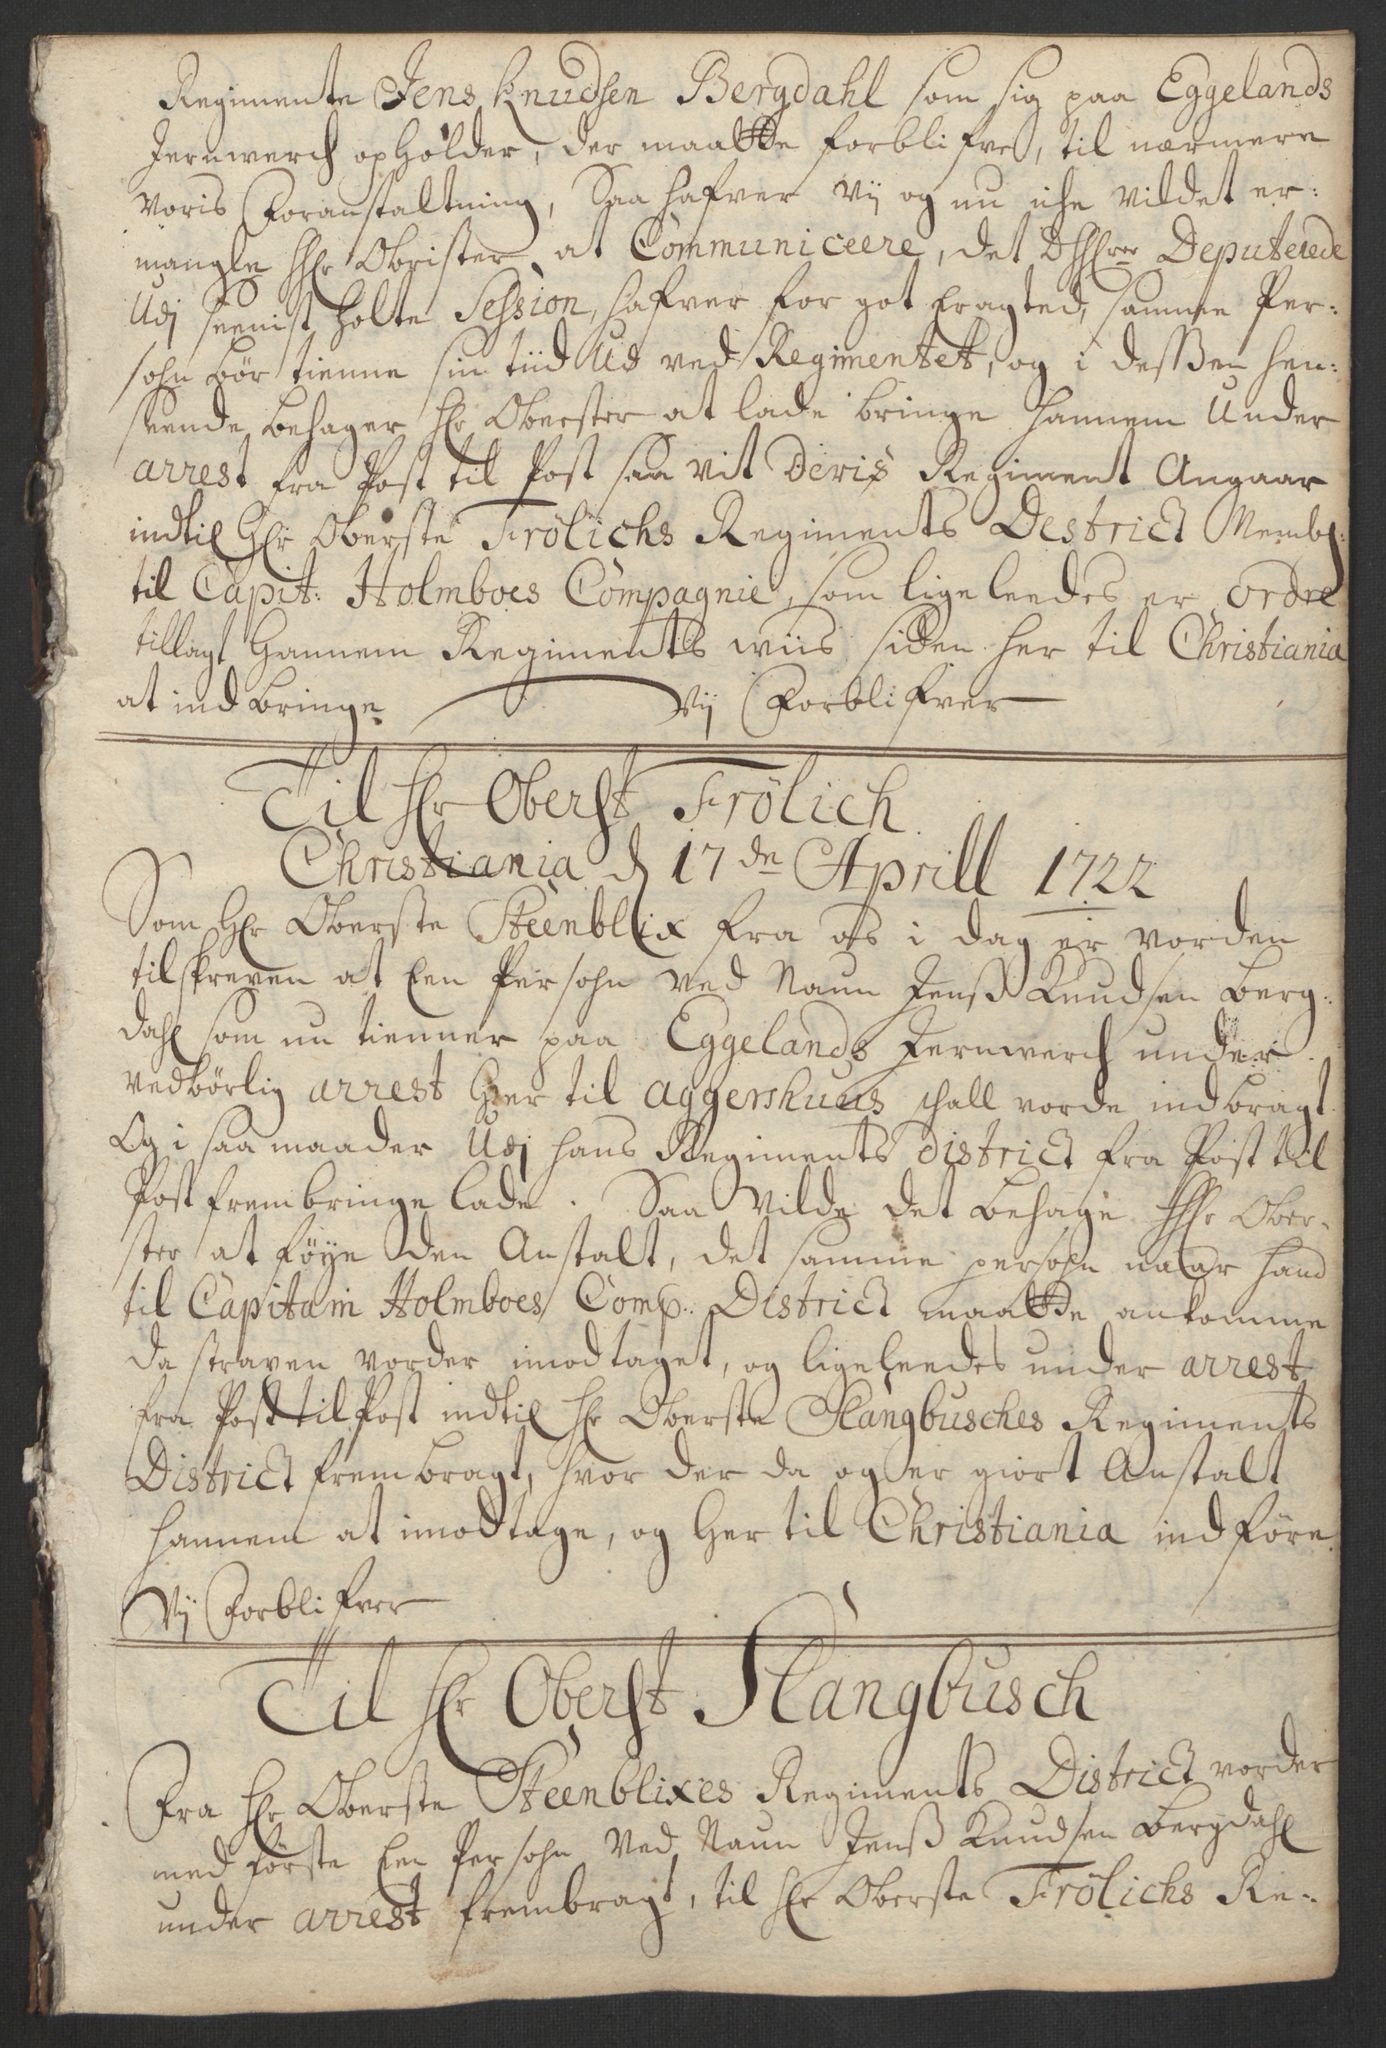 Regimente Jens Knudsen Bergdahl som sig paa Eggelands
Jernwerch opholder, der maatte forblifve, til nærmere
voris Foranstaltning, Saa hafver vij og nu iche vildet er:
mangle Hr Obrister at Communiceere, det DHHrer Deputerede
Udj seenist holte Session, hafver for got eragted, samme Per:
sohn bør tienne sin tiid Ud ved Regimentet, og i dessen hen:
seende behager Hr Oberster at lade bringe hannem Under
arrest fra Post til Post saa vit Deris Regiment Angaar
indtil Hr Oberste Frölichs Regiments Destrict Nembl:
til Capit: Holmboes Compagnie, som ligeleedes er ordre
tillagt hannem Regiments wiis siden her til Christiania
at indbringe Vij Forblifver
Til Hr Oberst Frölich
Christiania d 17de Aprill 1722
Som Hr Oberste Steenblix fra os i dag er vorden
tilskreven at Een Persohn ved Naun Jenss Knudsen Berg:
dahl som nu tienner paa Eggelands Jernwerch under
vedbörlig arrest her til Aggershuus schall vorde indbragt.
Og i saa maader Udj hans Regiments District fra Post til
Post frembringe lade. Saa Vilde det behage Hr Ober:
ster at föye den Anstalt, det samme persohn naar hand
til Capitain Holmboes Comp: District maatte ankomme
da straxen vorder imodtaget, og ligeleedes under arrest
fra Post til Post indtil Hr Oberste Slangbusches Regiments
District frembragt, hvor der da og er giort Anstalt
hannem at imodtage, og her til Christiania indföre.
Vij Forblifver
Til Hr Oberst Slangbusch
Fra Hr Oberste Steenblixes Regiments District vorder
med förste Een Persohn Ved Naun Jenss Knudsen Bergdahl
under arrest frembragt, til Hr Oberste Frölichs Re: